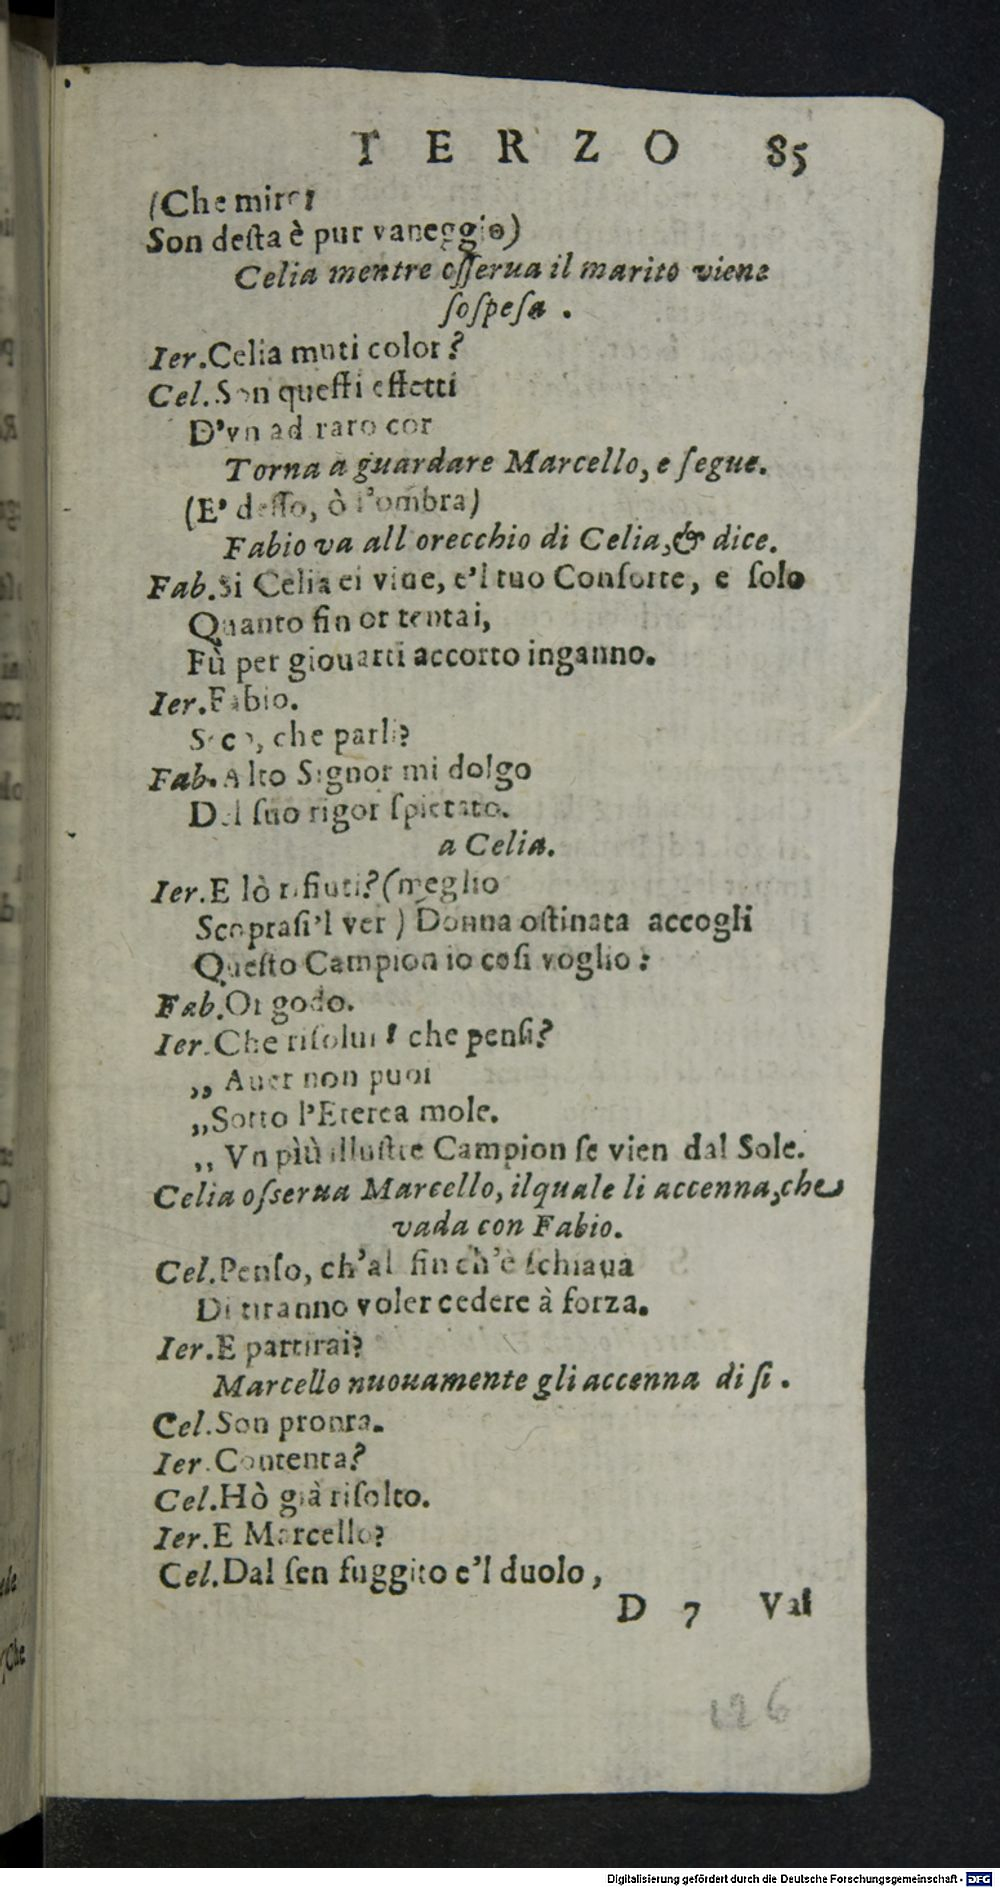 TERZO 85
(Che miro!
Son desta è pur vaneggio)
Celia mentre osserua il marito viene
sospesa .
Ier.Celia muti color?
Cel.Son questi effetti
D'vn ad raro cor
Torna a guardare Marcello, e segue.
(E' desso, ò l'ombra)
Fabio va all orecchio di Celia,& dice.
Fab.Si Celia ei viue, e'l tuo Consorte, e solo
Quanto fin or tentai,
Fù per giouarti accorto inganno.
Ier.Fabio.
Seco, che parli?
Fab.Alto Signor mi dolgo
Del suo rigor spietato.
a Celia.
Ier.E lò rifiuti?(meglio
Scoprasi'l ver) Donna ostinata accogli
Questo Campion io cosi voglio:
Fab.Or godo.
Ier.Che risolui ! che pensi?
,, Auer non puoi
,,Sotto l'Eterea mole.
,, Vn più illustre Campion se vien dal Sole.
Celia osserua Marcello, ilquale li accenna,che
vada con Fabio.
Cel.Penso, ch'al fin ch'è schiaua
Di tiranno voler cedere à forza.
Ier.E partirai?
Marcello nuouamente gli accenna di si .
Cel.Son pronta.
Ier.Contenta?
Cel.Hò già risolto.
Ier.E Marcello?
Cel.Dal sen fuggito e'l duolo ,
D 7 Val
126
ede
Che
Digitalisierung gefördert durch die Deutsche Forschungsgemeinschaft - DFG